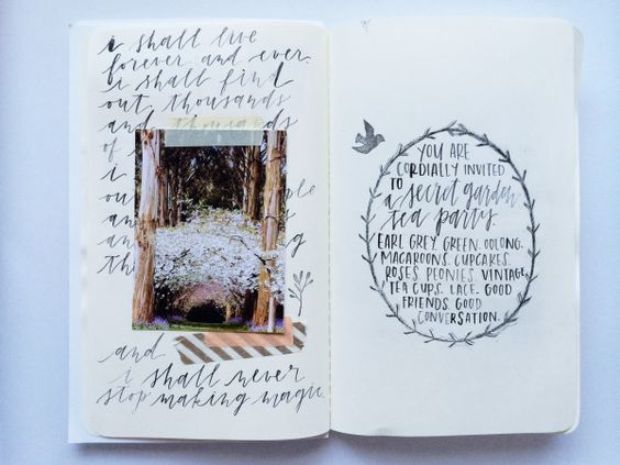 i shall live
forever and ever.
i shall find
out thousands
and thousands
of
i
ou ple
an
an ng
the
and
i shall never
stop making magic.
YOU ARE
CORDIALLY INVITED
TO
a secret garden
tea party.
EARL GREY. GREEN. OOLONG.
MACAROONS. CUPCAKES.
ROSES. PEONIES. VINTAGE
TEA CUPS. LACE. GOOD
FRIENDS. GOOD
CONVERSATION.